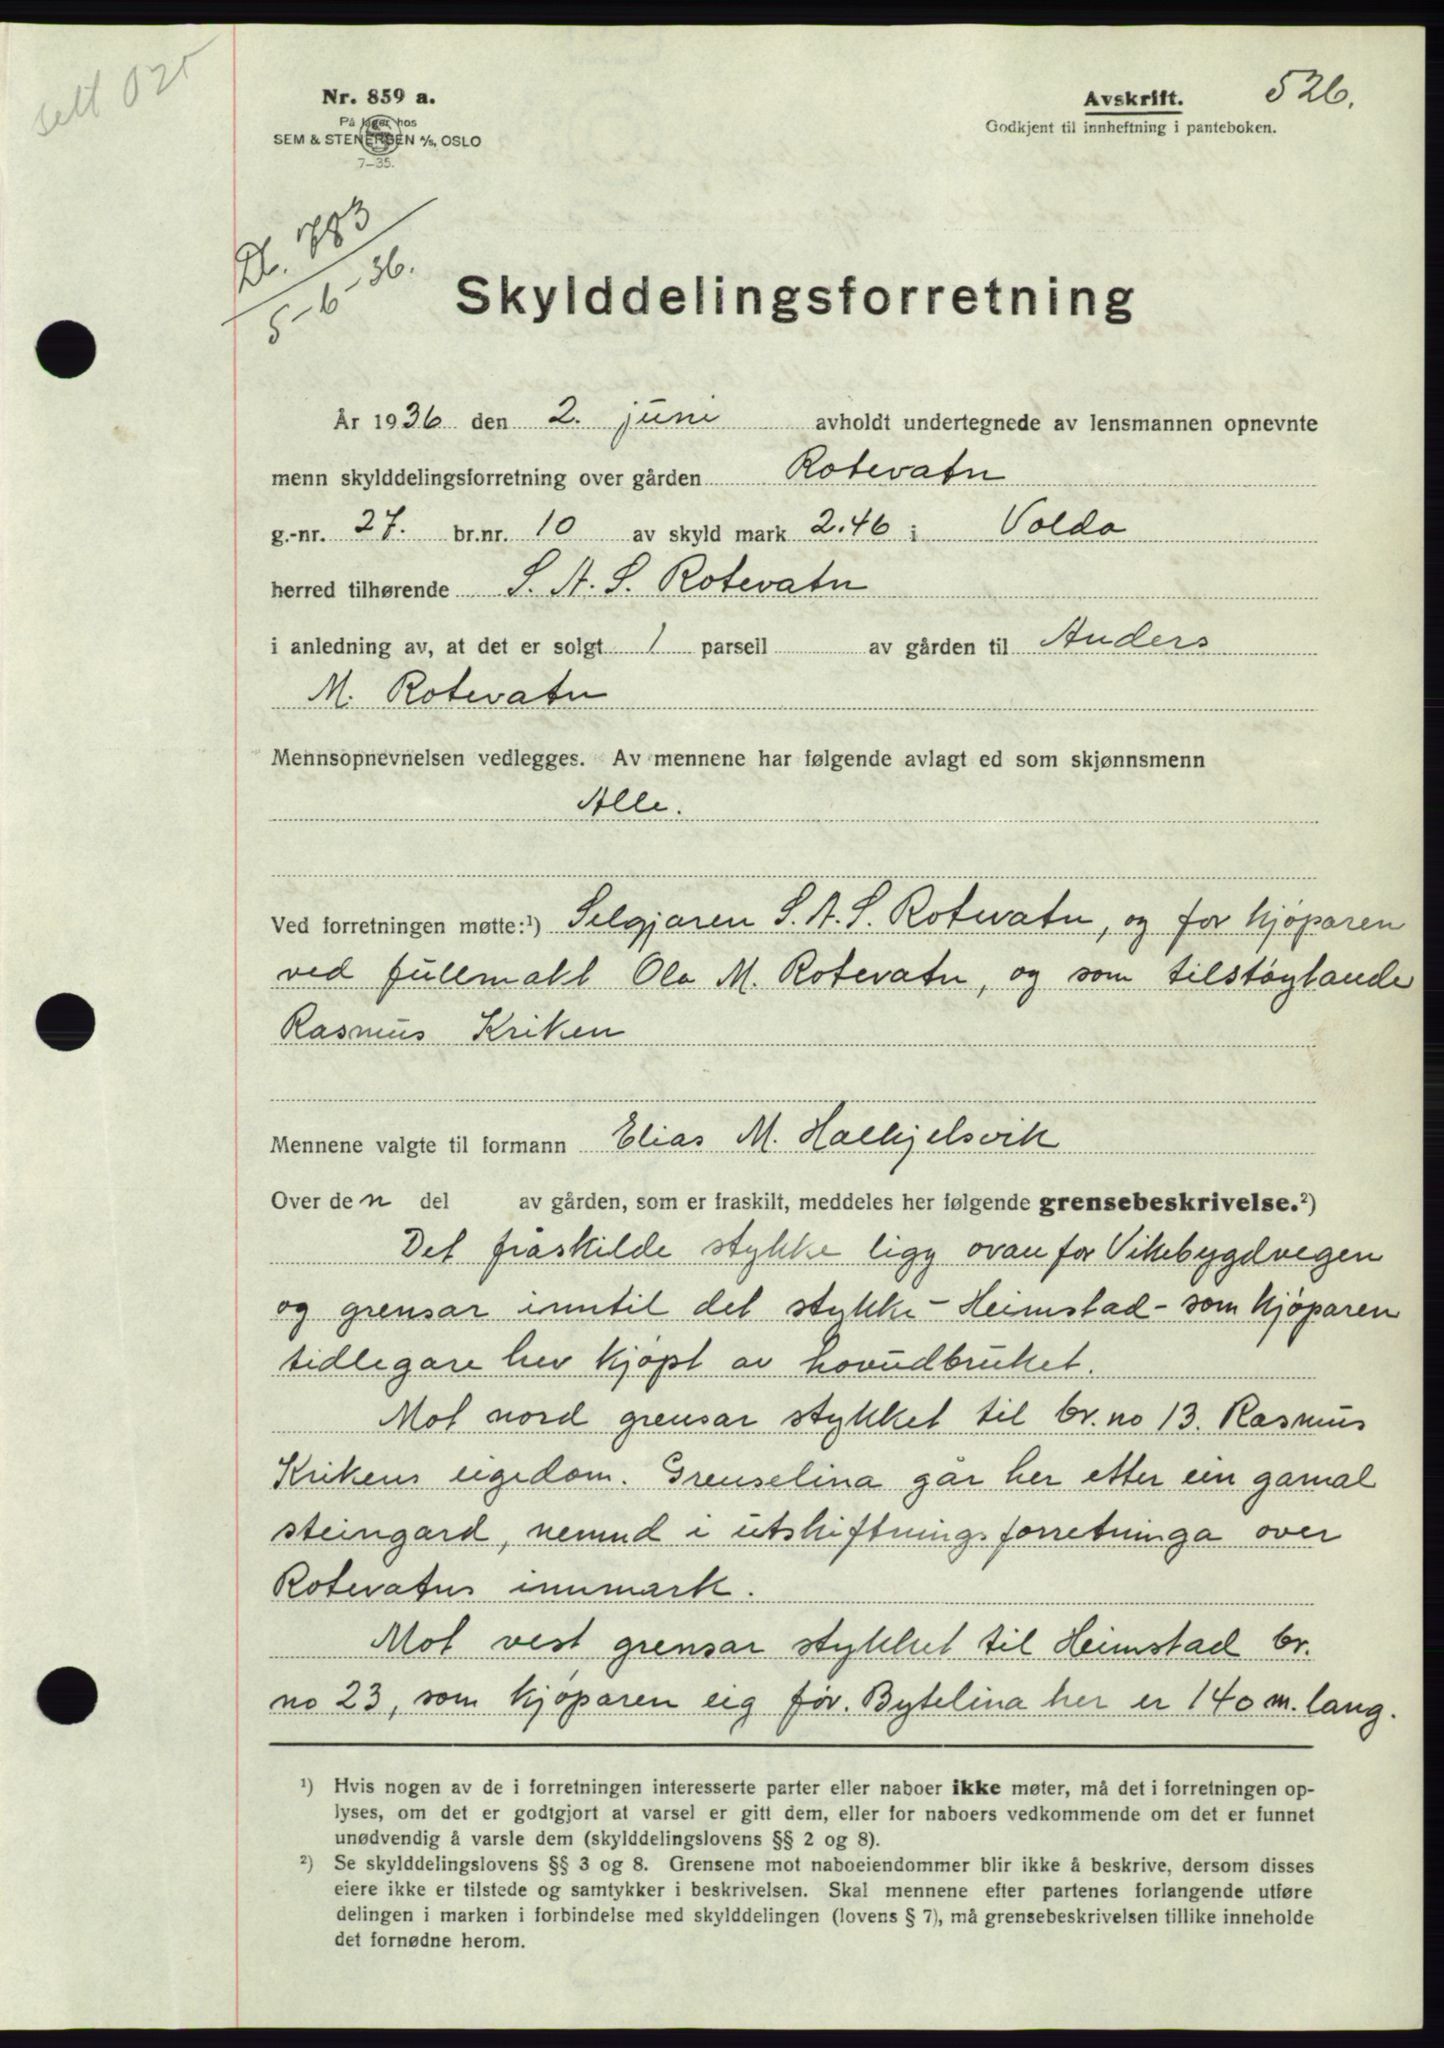 Nr. 859 a.
På lager hos
SEM & STENERSEN A/S, OSLO
7–35.
Avskrift. 526.
Godkjent til innheftning i panteboken.
Db. 783
5-6-36.
Skylddelingsforretning
År 1936 den 2. juni avholdt undertegnede av lensmannen opnevnte
menn skylddelingsforretning over gården Rotevatn
g.-nr. 27. br.nr. 10 av skyld mark 2.46 i Volda
herred tilhørende S. A. S. Rotevatn
i anledning av, at det er solgt 1 parsell av gården til Anders
M. Rotevatn
Mennsopnevnelsen vedlegges. Av mennene har følgende avlagt ed som skjønnsmenn
Alle.
Ved forretningen møtte:¹) Selgjaren S. A. S. Rotevatn, og for kjøparen
ved fullmakt Ola M. Rotevatn, og som tilstøytande
Rasmus Kriken
Mennene valgte til formann Elias M. Halkjelsvik
Over den del av gården, som er fraskilt, meddeles her følgende grensebeskrivelse.²)
Det fråskilde stykke ligg ovanfor Vikebygdvegen
og grensar inntil det stykke - Heimstad - som kjøparen
tidlegare hev kjøpt av hovudbruket.
Mot nord grensar stykket til br. no 13. Rasmus
Krikens eigedom. Grenselina går her etter ein gamal
steingard, nemnd i utskiftningsforretninga over
Rotevatns innmark.
Mot vest grensar stykket til Heimstad br.
no 23, som kjøparen eig før. Bytelina her er 140 m. lang.
¹) Hvis nogen av de i forretningen interesserte parter eller naboer ikke møter, må det i forretningen op-
lyses, om det er godtgjort at varsel er gitt dem, eller for naboers vedkommende om det er funnet
unødvendig å varsle dem (skylddelingslovens §§ 2 og 8).
²) Se skylddelingslovens §§ 3 og 8. Grensene mot naboeiendommer blir ikke å beskrive, dersom disses
eiere ikke er tilstede og samtykker i beskrivelsen. Skal mennene efter partenes forlangende utføre
delingen i marken i forbindelse med skylddelingen (lovens § 7), må grensebeskrivelsen tillike inneholde
det fornødne herom.